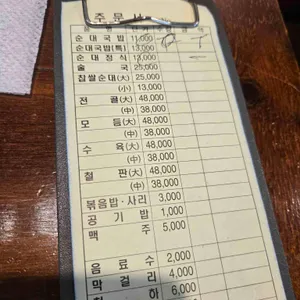 주 문
순 대 국 밥 11,000
순대국밥(특) 13,000
순 대 정 식 13,000
술 국 25,000
찹쌀순대(大) 25,000
(小) 13,000
전 골(大) 48,000
(中) 38,000
모 듬(大) 48,000
(中) 38,000
수 육(大) 48,000
(中) 38,000
철 판(大) 48,000
(中) 38,000
볶음밥·사리 3,000
공 기 밥 1,000
맥 주 5,000
음 료 수 2,000
막 걸 리 4,000
하 6,000